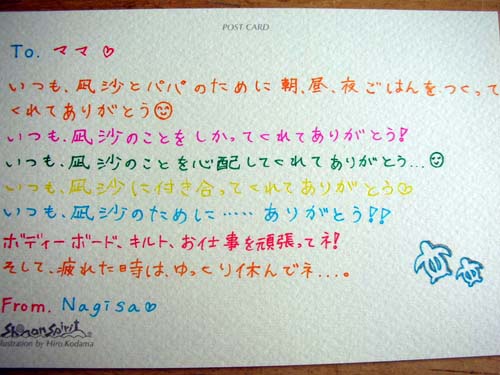 POST CARD
To. ママ♡
いつも、凪沙とパパのために朝、昼、夜ごはんをつくって
くれてありがとう☺
いつも、凪沙のことをしかってくれてありがとう!
いつも、凪沙のことを心配してくれてありがとう...☺
いつも、凪沙に付き合ってくれてありがとう♡
いつも、凪沙のために…… ありがとう!!
ボディーボード、キルト、お仕事を頑張ってネ!
そして、疲れた時は、ゆっくり休んでネ...。
From. Nagisa♡
Shonan Spirit
Illustration by Hiro.Kodama